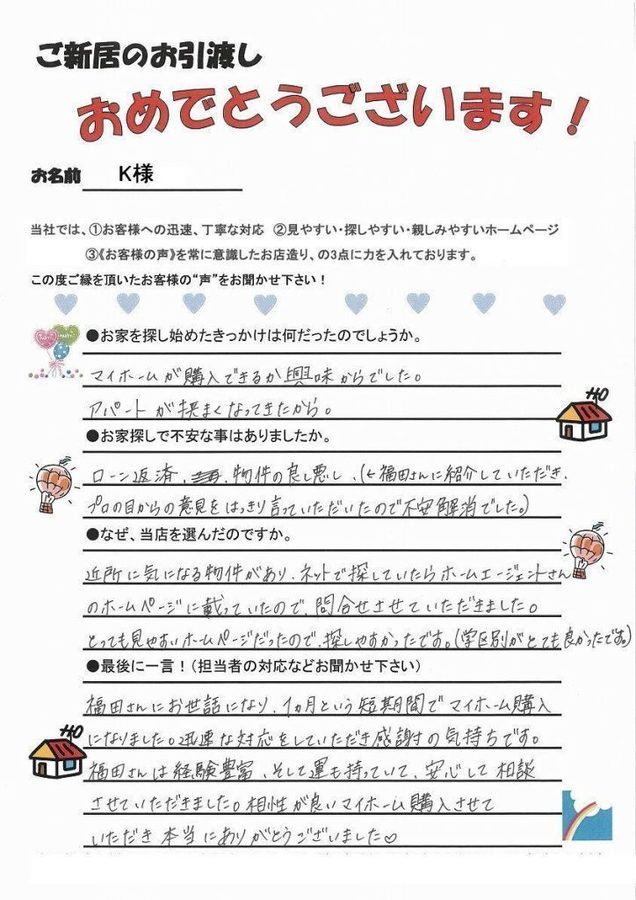 ご新居のお引渡し
おめでとうございます！
お名前 K様
当社では、①お客様への迅速、丁寧な対応 ②見やすい・探しやすい・親しみやすいホームページ
③《お客様の声》を常に意識したお店造り、の3点に力を入れております。
この度ご縁を頂いたお客様の“声”をお聞かせ下さい！
●お家を探し始めたきっかけは何だったのでしょうか。
マイホームが購入できるか興味からでした。
アパートが狭まくなってきたから。
●お家探しで不安な事はありましたか。
ローン返済、物件の良し悪し、(←福田さんに紹介していただき、
プロの目からの意見をはっきり言っていただいたので不安解消でした。)
●なぜ、当店を選んだのですか。
近所に気になる物件があり、ネットで探していたらホームエージェントさん
のホームページに載っていたので、問合せさせていただきました。
とっても見やすいホームページだったので、探しやすかったです。(学区別がとても良かったです)
●最後に一言！(担当者の対応などお聞かせ下さい)
福田さんにお世話になり、1ヵ月という短期間でマイホーム購入
になりました。迅速な対応をしていただき感謝の気持ちです。
福田さんは経験豊富、そして運も持っていて、安心して相談
させていただきました。相性が良いマイホーム購入させて
いただき本当にありがとうございました♡